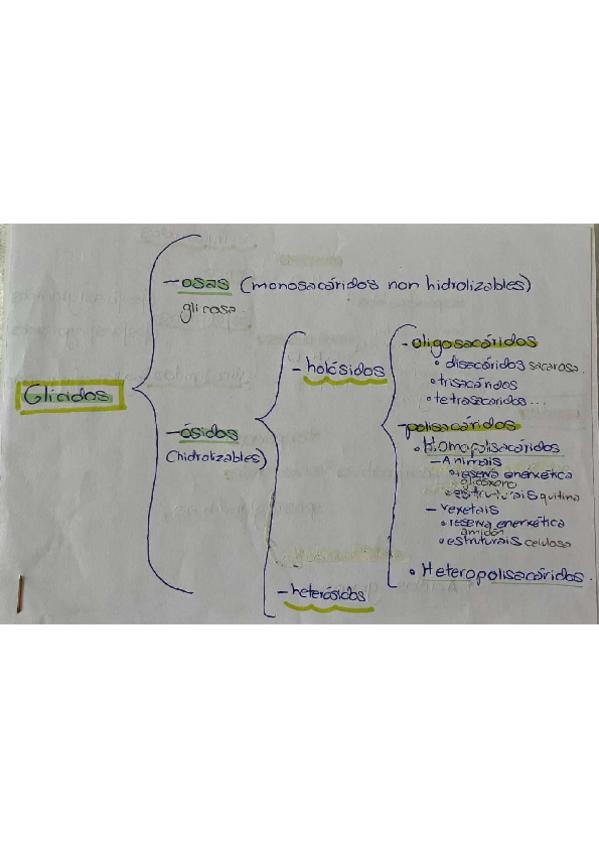 Glicidos
- osas (monosacáridos non hidrolizables)
glicosa
- ósidos
(hidrolizables)
- holósidos
- oligosacáridos
• disacáridos sacarosa.
• trisacáridos
• tetrasacáridos...
- polisacáridos
• Homopolisacáridos
- Animais
• reserva enerxética
glicóxeno
• estruturais quitina
- vexetais
• reserva enerxética
amidón
• estruturais celulosa
• Heteropolisacáridos.
- heterósidos